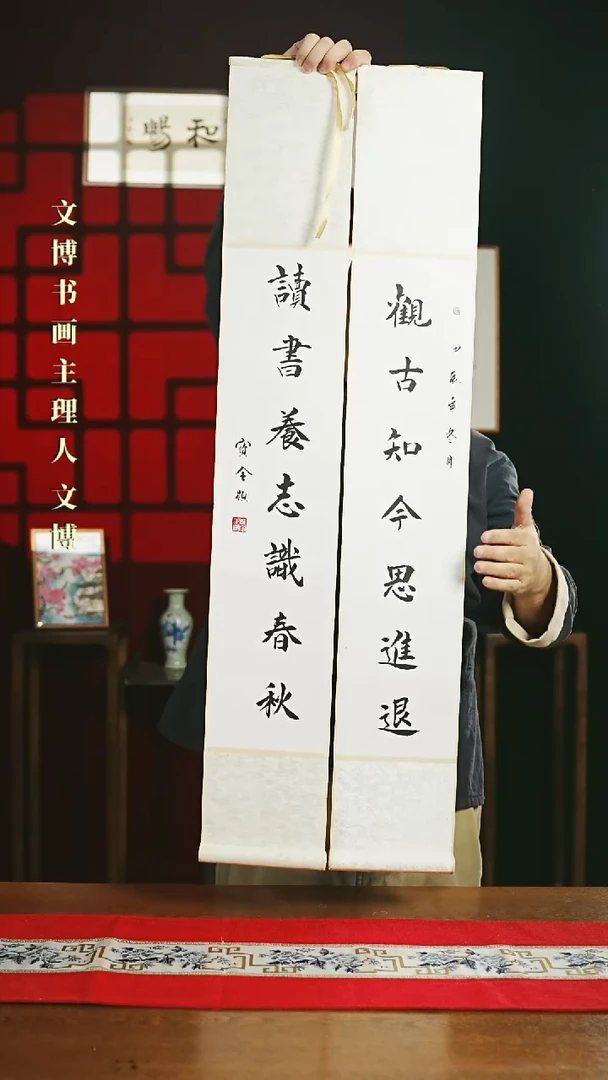 觀古知今思進退
讀書養志識春秋
冬月
寶全敬
和
暢
文博书画主理人文博